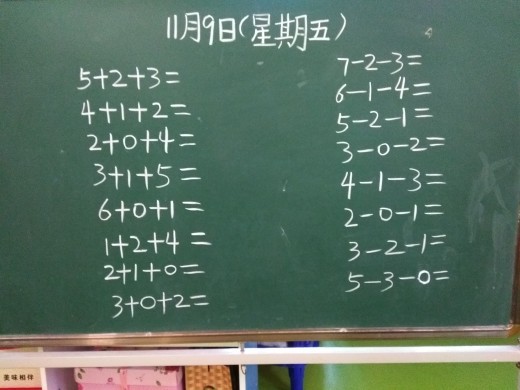 11月9日(星期五)
5+2+3=
4+1+2=
2+0+4=
3+1+5=
6+0+1=
1+2+4=
2+1+0=
3+0+2=
7-2-3=
6-1-4=
5-2-1=
3-0-2=
4-1-3=
2-0-1=
3-2-1=
5-3-0=
美味相伴